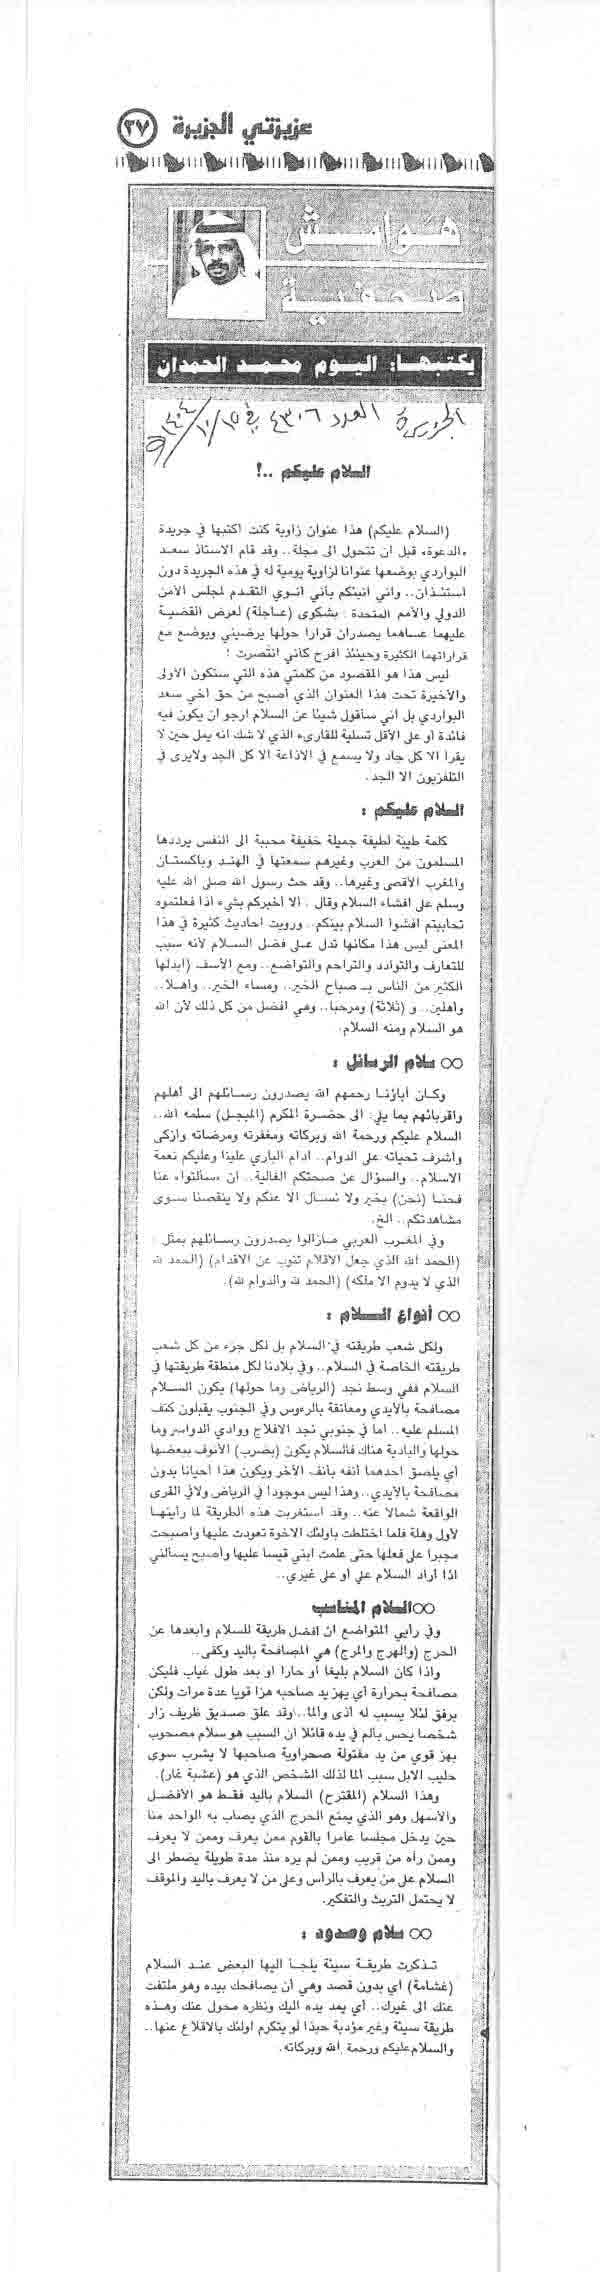 عزيزتي الجزيرة ٢٧
هوامش
صحفية
يكتبها: اليوم محمد الحمدان
الجزيرة العدد ٤٣٠٦ في ١٥/١٠/١٤٠٤هـ
السلام عليكم ..!
(السلام عليكم) هذا عنوان زاوية كنت اكتبها في جريدة
«الدعوة» قبل ان تتحول الى مجلة.. وقد قام الاستاذ سعد
البواردي بوضعها عنوانا لزاوية يومية له في هذه الجريدة دون
استئذان.. واني انبئكم بأني انوي التقدم لمجلس الأمن
الدولي والأمم المتحدة بشكوى (عاجلة) لعرض القضية
عليهما عساهما يصدران قرارا حولها يرضيني ويوضع مع
قراراتهما الكثيرة وحينئذ افرح كأني انتصرت !
ليس هذا هو المقصود من كلمتي هذه التي ستكون الأولى
والأخيرة تحت هذا العنوان الذي أصبح من حق اخي سعد
البواردي بل اني سأقول شيئا عن السلام ارجو ان يكون فيه
فائدة أو على الأقل تسلية للقارىء الذي لا شك انه يمل حين لا
يقرأ الا كل جاد ولا يسمع في الاذاعة الا كل الجد ولايرى في
التلفزيون الا الجد.
السلام عليكم :
كلمة طيبة لطيفة جميلة خفيفة محببة الى النفس يرددها
المسلمون من العرب وغيرهم سمعتها في الهند وباكستان
والمغرب الأقصى وغيرها.. وقد حث رسول الله صلى الله عليه
وسلم على افشاء السلام وقال . الا اخبركم بشيء اذا فعلتموه
تحاببتم افشوا السلام بينكم.. ورويت احاديث كثيرة في هذا
المعنى ليس هذا مكانها تدل على فضل السلام لأنه سبب
للتعارف والتوادد والتراحم والتواضع.. ومع الأسف (ابدلها
الكثير من الناس بـ صباح الخير.. ومساء الخير.. وأهلا..
وأهلين.. و (ثلاثة) ومرحبا.. وهي افضل من كل ذلك لأن الله
هو السلام ومنه السلام.
○○ سلام الرسائل :
وكان أباؤنا رحمهم الله يصدرون رسائلهم الى أهلهم
وأقربائهم بما يلي: الى حضرة المكرم (المبجل) سلمه الله..
السلام عليكم ورحمة الله وبركاته ومغفرته ومرضاته وأزكى
وأشرف تحياته على الدوام.. ادام الباري علينا وعليكم نعمة
الاسلام.. والسؤال عن صحتكم الغالية.. ان «سألتوا» عنا
فحنا (نحن) بخير ولا نسأل الا عنكم ولا ينقصنا سوى
مشاهدتكم.. الخ.
وفي المغرب العربي مازالوا يصدرون رسائلهم بمثل :
(الحمد الله الذي جعل الأقلام تنوب عن الأقدام) (الحمد لله
الذي لا يدوم الا ملكه) (الحمد لله والدوام لله).
○○ أنواع السلام :
ولكل شعب طريقته في السلام بل لكل جزء من كل شعب
طريقته الخاصة في السلام.. وفي بلادنا لكل منطقة طريقتها في
السلام ففي وسط نجد (الرياض وما حولها) يكون السلام
مصافحة بالأيدي ومعانقة بالرءوس وفي الجنوب يقبلون كتف
المسلم عليه.. اما في جنوبي نجد الافلاج ووادي الدواسر وما
حولها والبادية هناك فالسلام يكون (بضرب) الأنوف ببعضها
أي يلصق احدهما أنفه بأنف الآخر ويكون هذا احيانا بدون
مصافحة بالأيدي.. وهذا ليس موجودا في الرياض ولافي القرى
الواقعة شمالا عنه.. وقد استغربت هذه الطريقة لما رأيتها
لأول وهلة فلما اختلطت بأولئك الاخوة تعودت عليها وأصبحت
مجبرا على فعلها حتى علمت ابني قيسا عليها وأصبح يسألني
اذا أراد السلام علي أو على غيري..
○○السلام المناسب
وفي رأيي المتواضع ان افضل طريقة للسلام وأبعدها عن
الحرج (والهرج والمرج) هي المصافحة باليد وكفى..
واذا كان السلام بليغا أو حارا او بعد طول غياب فليكن
مصافحة بحرارة أي يهز يد صاحبه هزا قويا عدة مرات ولكن
برفق لئلا يسبب له أذى وألما.. وقد علق صديق ظريف زار
شخصا يحس بألم في يده قائلا ان السبب هو سلام مصحوب
بهز قوي من يد مفتولة صحراوية صاحبها لا يشرب سوى
حليب الابل سبب الما لذلك الشخص الذي هو (عشبة غار).
وهذا السلام (المقترح) السلام باليد فقط هو الأفضل
والأسهل وهو الذي يمنع الحرج الذي يصاب به الواحد منا
حين يدخل مجلسا عامرا بالقوم ممن يعرف وممن لا يعرف
وممن رآه من قريب وممن لم يره منذ مدة طويلة يضطر الى
السلام على من يعرف بالرأس وعلى من لا يعرف باليد والموقف
لا يحتمل التريث والتفكير.
○○ سلام وصدود :
تذكرت طريقة سيئة يلجأ اليها البعض عند السلام
(غشامة) أي بدون قصد وهي أن يصافحك بيده وهو ملتفت
عنك الى غيرك.. أي يمد يده اليك ونظره محول عنك وهذه
طريقة سيئة وغير مؤدبة حبذا لو يتكرم أولئك بالاقلاع عنها..
والسلام عليكم ورحمة الله وبركاته.